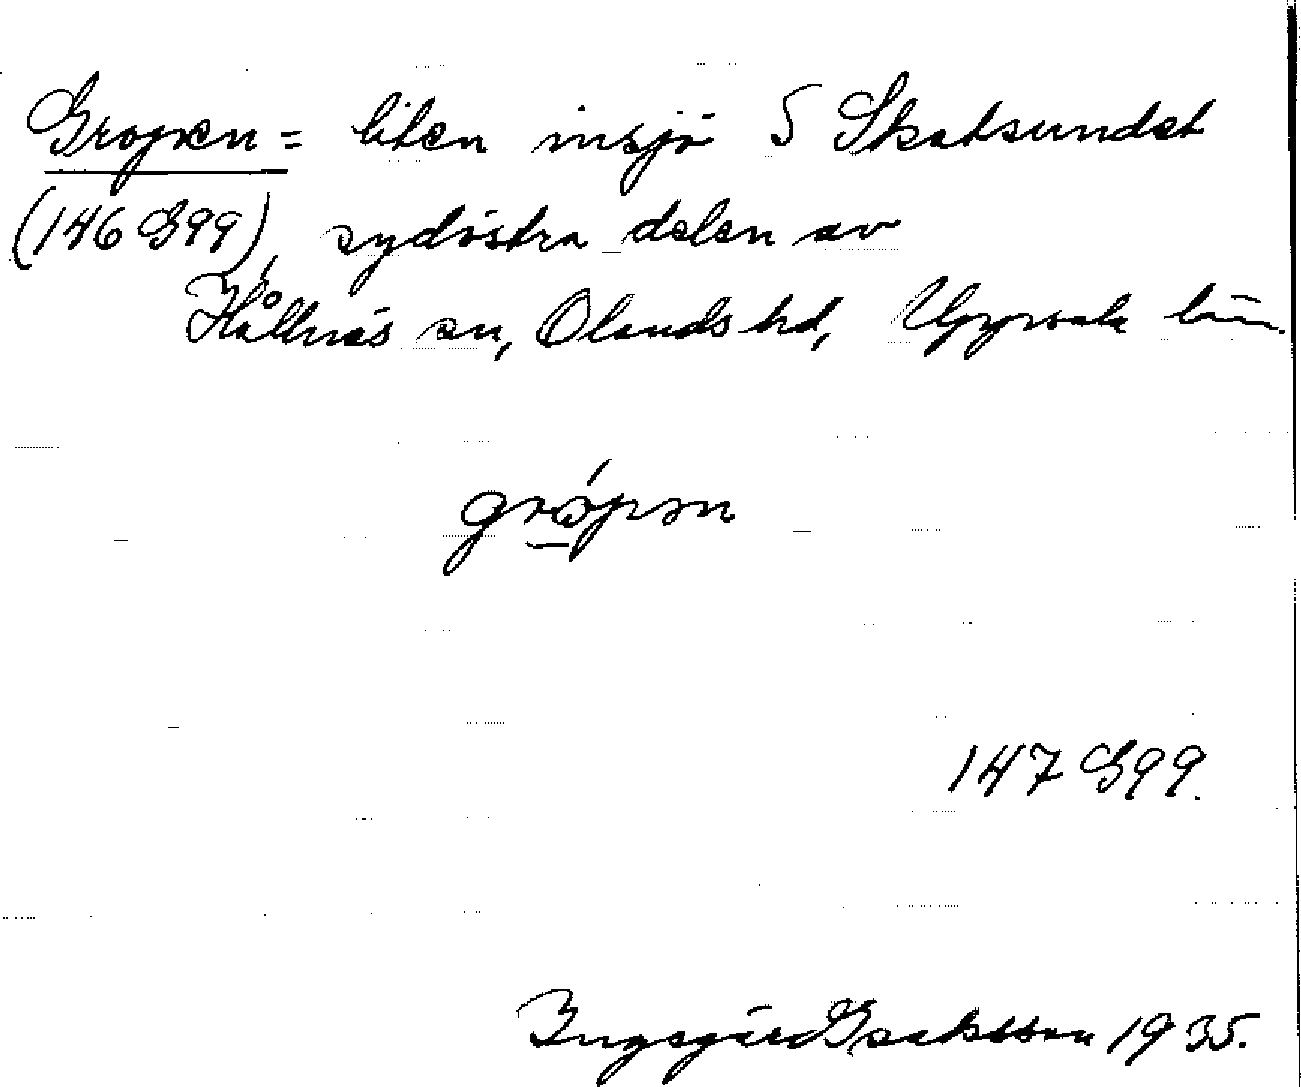 Gropen = liten insjö S Skatsundet
(146 G99), sydöstra delen av
Hållnäs sn, Olands hd, Uppsala län.
gró̱pən
147 G99.
Ingegärd Isaksson 1935.